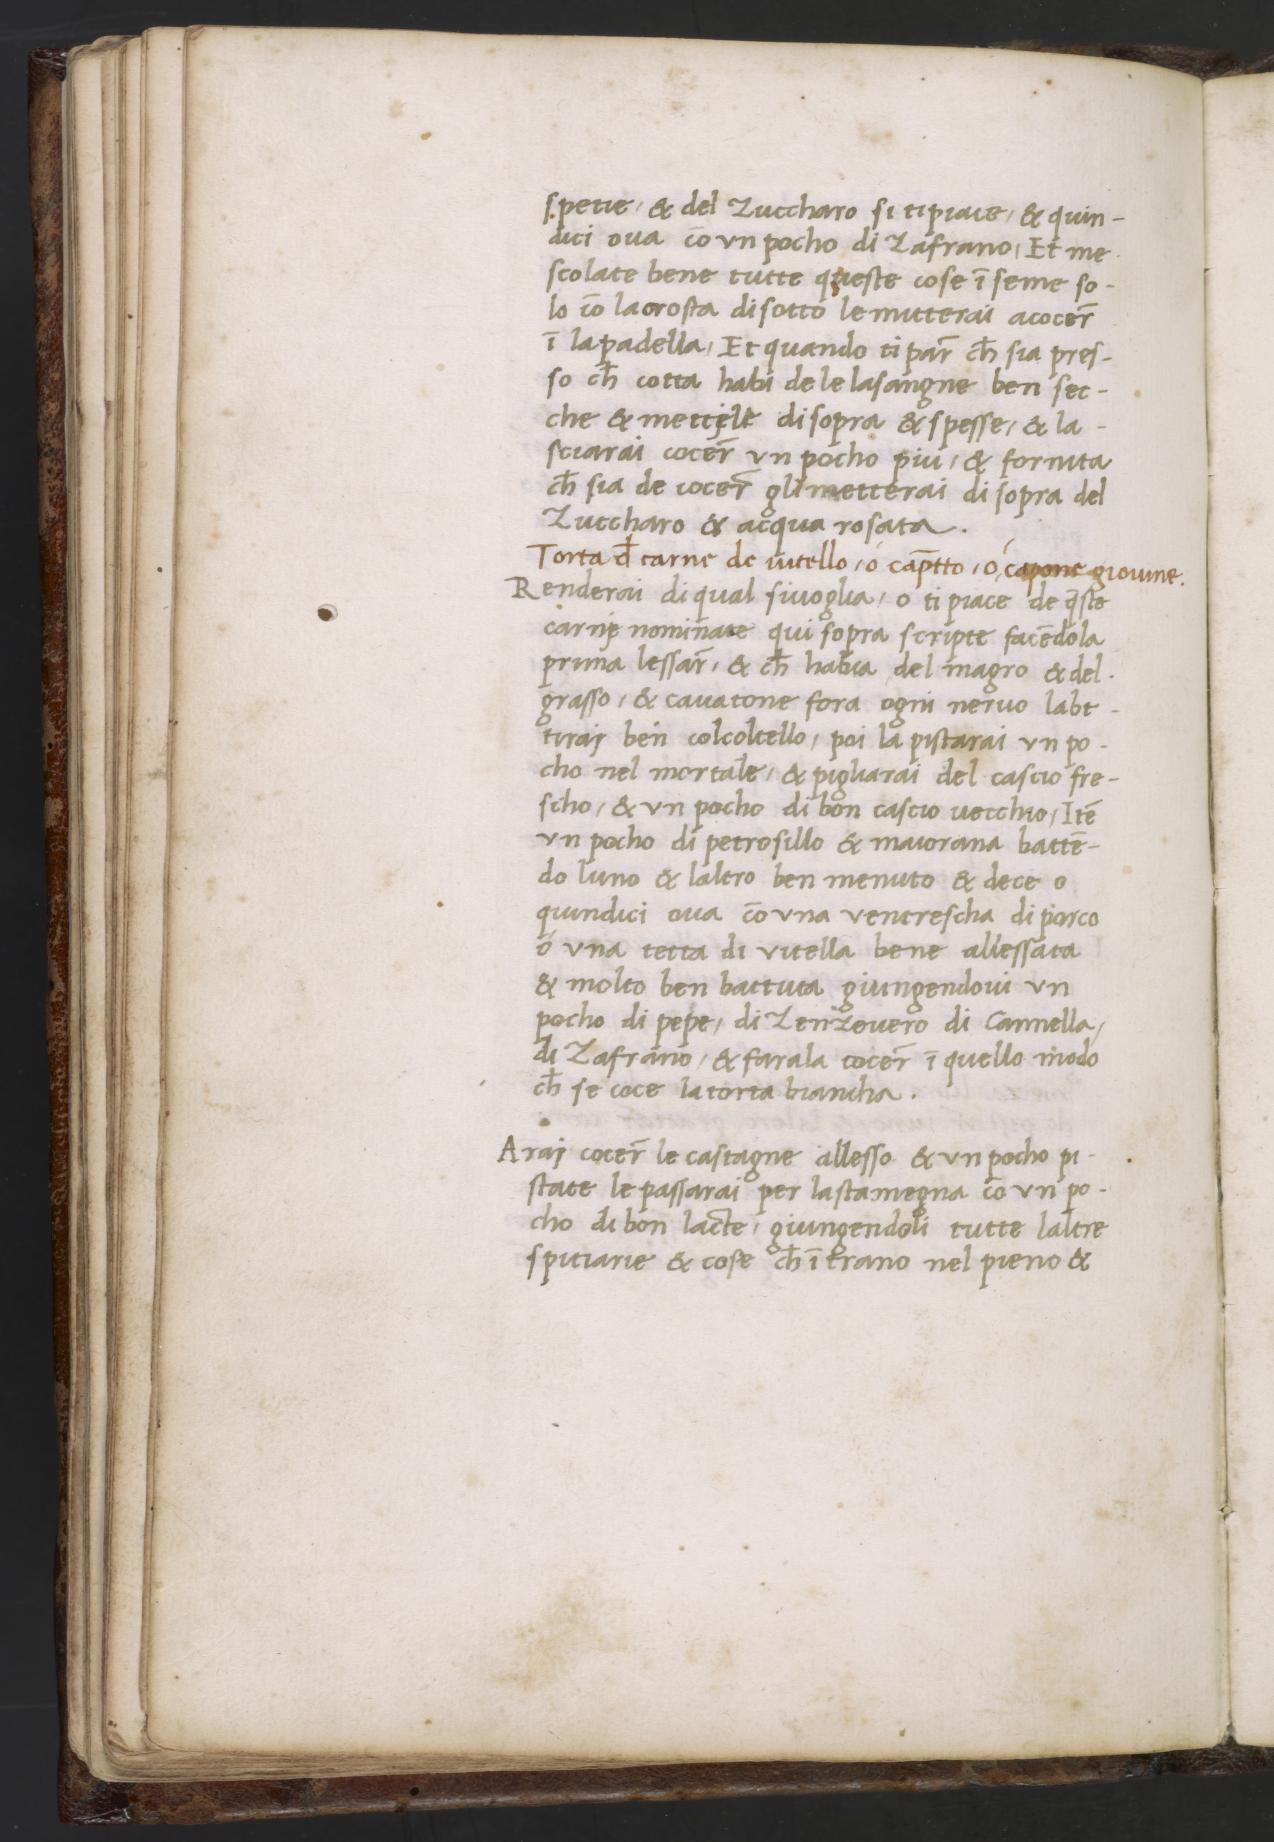 spetie, & del Zuccharo si ti piace, & quin-
dici ova cō vn pocho di Zafrano, Et me
scolate bene tutte queste cose ī seme so-
lo cō la crosta di sotto le mitterai acocer̄
ī la padella, Et quando ti par̄ ch̄ sia pres-
so ch̄ cotta habi de le lasangne ben sec-
che & mettile di sopra & spesse, & la-
sciarai cocer̄ vn pocho piu, & fornita
ch̄ sia de cocer̄ gli metterai di sopra del
Zuccharo & acqua rosata.
Torta d̄ carne de vitello, o cap̄tto, o capone giovine.
Renderai di qual si voglia, o ti piace de q̄ste
carne nominate qui sopra scripte facēdola
prima lessar̄, & ch̄ habia del magro & del
grasso, & cauatone fora ogni neruo labt-
tirai ben col coltello, poi la pistarai vn po-
cho nel mortale, & pigliarai del cascio fre-
scho, & vn pocho di bon cascio vecchio, Itē
vn pocho di petrosillo & maiorana battē-
do luno & laltro ben menuto & dece o
quindici ova cō vna ventrescha di porco
o vna tetta di vitella bene allessata
& molto ben battuta giungendoui vn
pocho di pepe, di Zenzouero di Cannella,
di Zafrano, & farala cocer̄ ī quello modo
ch̄ se coce la torta biancha.
Arai cocer̄ le castagne allesso & vn pocho pi-
state le passarai per la stamegna cō vn po-
cho di bon lacte, giungendoli tutte laltre
spitiarie & cose ch̄ ītrano nel pieno &